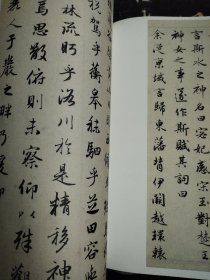 言斯水之神名曰宓妃感宋玉對楚王
神女之事遂作斯賦其詞曰
余從京域言歸東藩背伊闕越轘轅
税駕乎蘅皋秣駟乎芝田容與
林流眄乎洛川於是精移神
焉思散俯則未察仰以殊觀
人于巖之畔乃援